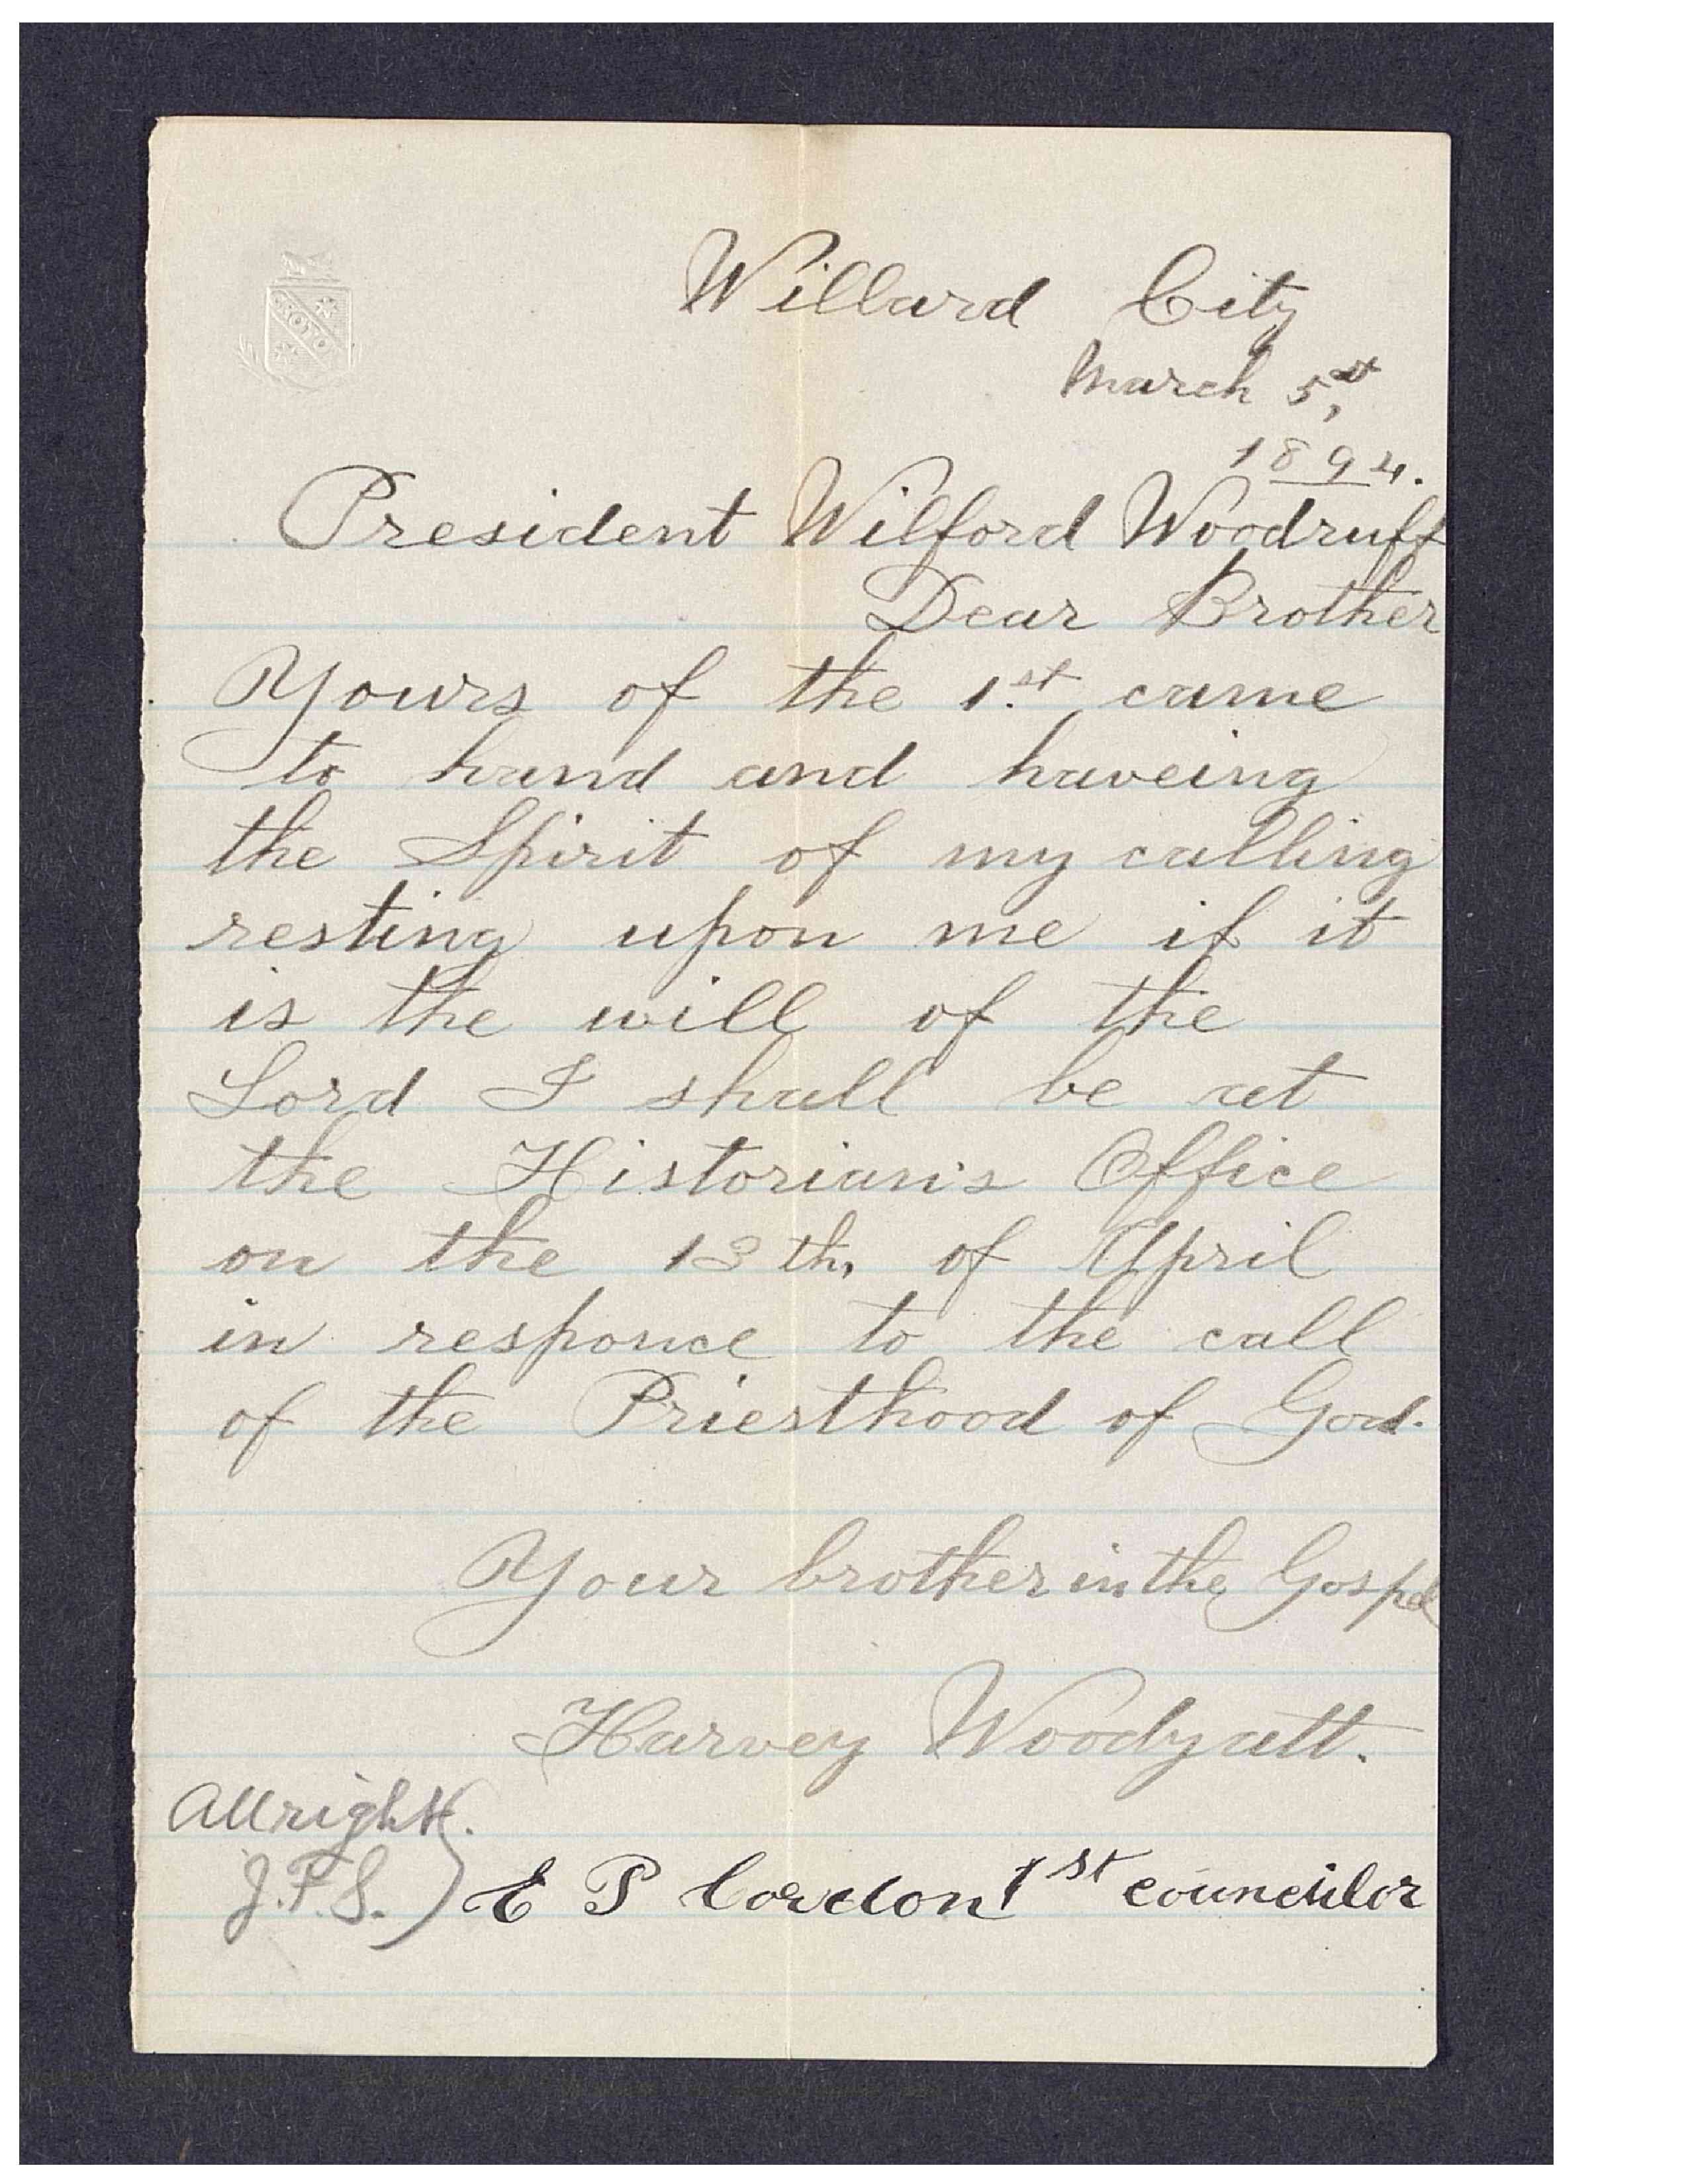 KOTO
Willard City
March 5st,
1894.
President Wilford Woodruff
Dear Brother
Yours of the 1st. came
to hand and haveing
the Spirit of my calling
resting upon me if it
is the will of the
Lord I shall be at
the Historian's Office
on the 13th, of April
in responce to the call
of the Priesthood of God.
Your brother in the Gospel
Harvey Woodyatt.
Allright.
J.F.S.) E P Cordon 1st councilor